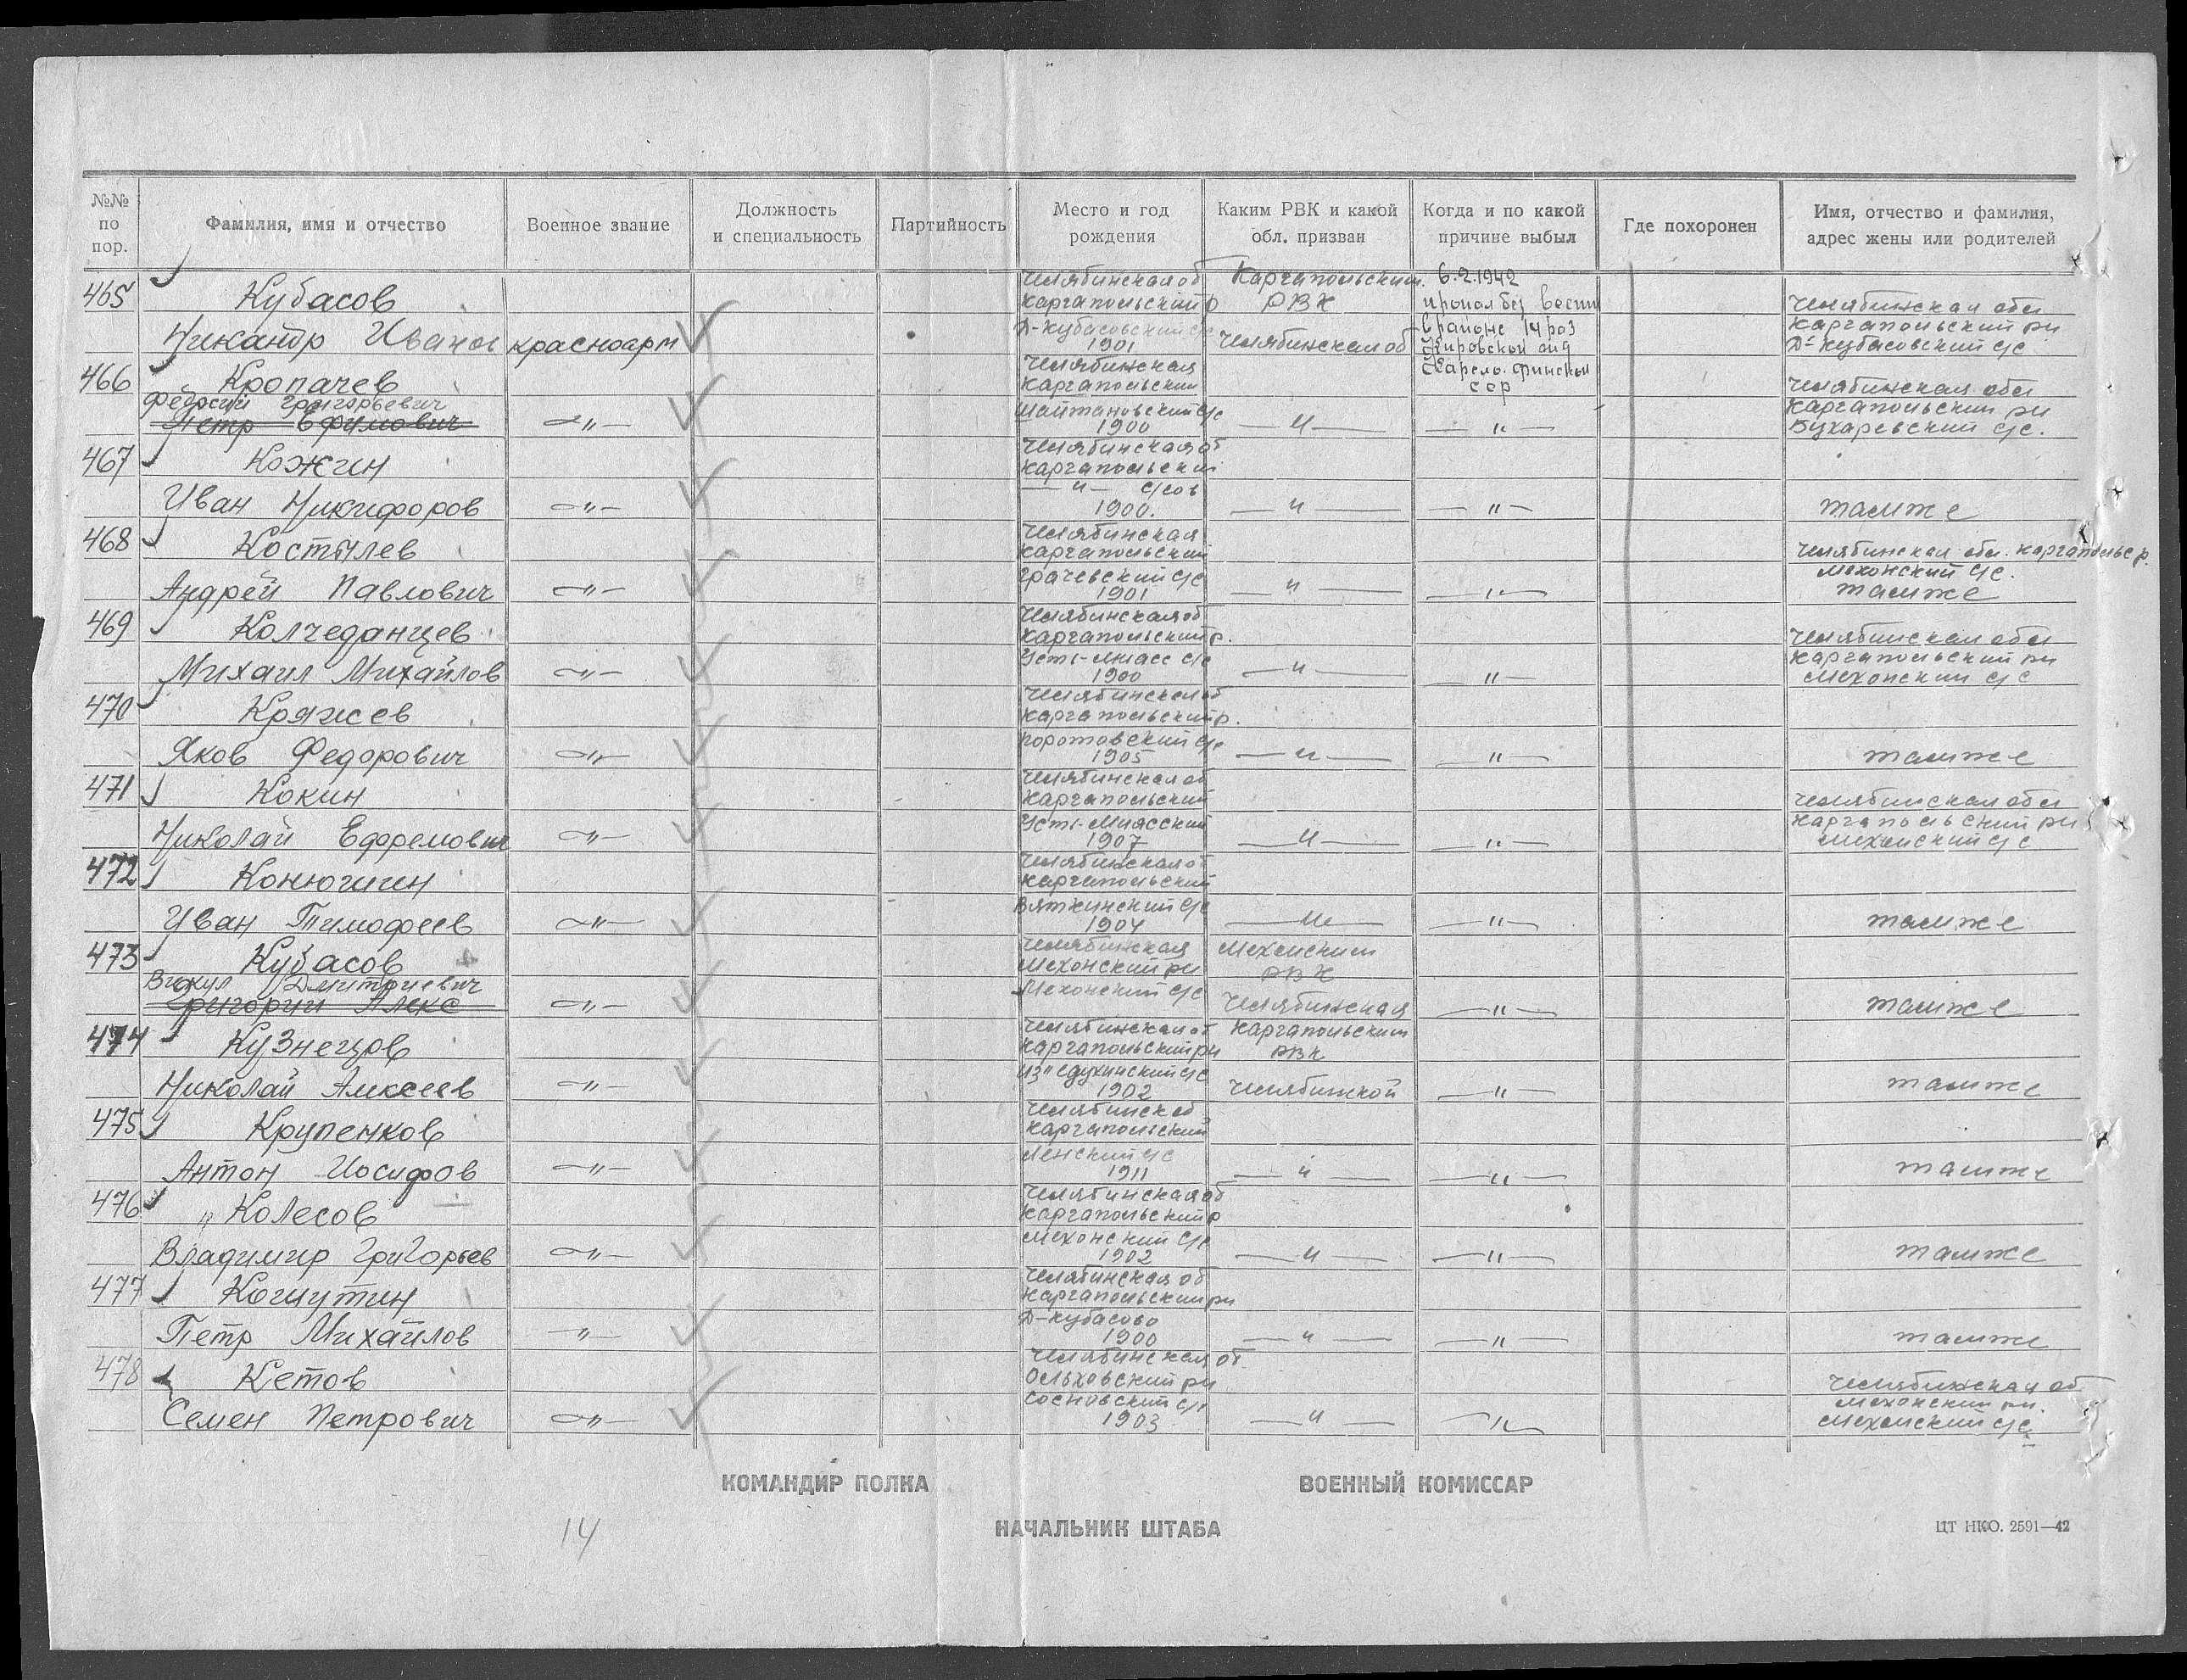 №№ по пор.
Фамилия, имя и отчество
Военное звание
Должность и специальность
Партийность
Место и год рождения
Каким РВК и какой обл. призван
Когда и по какой причине выбыл
Где похоронен
Имя, отчество и фамилия, адрес жены или родителей
465 Кубасов Челябинская об Каргапольским. 6.2.1942
Каргапольский р РВК пропал без вести Челябинская обл
Никандр Иванов красноарм Д-Кубасовский с/с в районе 14 роз Каргапольский рн
1901 Челябинская об Кировской Д-Кубасовский с/с
466 Кропачев Челябинская Карело-Финской
Каргапольский сср Челябинская обл
Григорьевич Шайтановский с/с Каргапольский рн
Петр Ефимович —"— 1900 —"— —"— Бухаревский с/с.
467 Кожин Челябинская об
Каргапольский
—"— с/сов
Иван Никифоров —"— 1900. —"— —"— там же
468 Костылев Челябинская
Каргапольский Челябинская обл. Каргапольс р.
Грачевский с/с Мехонский с/с.
Андрей Павлович —"— 1901 —"— —"— там же
469 Колчеданцев Челябинская об
Каргапольский р. Челябинская обл
Усть-Миасс с/с Каргапольский рн
Михаил Михайлов —"— 1900 —"— —"— Мехонский с/с
470 Кряжев Челябинская об
Каргапольский р.
с/с
Яков Федорович —"— 1905 —"— —"— там же
471 Кокин Челябинская об
Каргапольский Челябинская обл
Усть-Миасский Каргапольский рн
Николай Ефремович —"— 1907 —"— —"— Мехонский с/с
472 Конюгин Челябинская об
Каргапольский
Вяткинский с/с
Иван Тимофеев —"— 1904 —"— —"— там же
473 Кубасов Челябинская Мехонским
Мехонский рн РВК
Викул Дмитриевич Мехонский с/с
Григорий Алекс —"— Челябинская —"— там же
474 Кузнецов Челябинская об Каргапольским
Каргапольский рн РВК
с/с
Николай Алексеев —"— 1902 Челябинской —"— там же
475 Крупенков Челябинск об
Каргапольский
с/с
Антон Иосифов —"— 1911 —"— —"— там же
476 " Колесов Челябинская об
Каргапольский р
Мехонский с/с
Владимир Григорьев —"— 1902 —"— —"— там же
477 Кошутин Челябинская об
Каргапольский рн
Д-Кубасово
Петр Михайлов —"— 1900 —"— —"— там же
478 Кетов Челябинская об
Ольховский рн Челябинская об
Сосновский с/с Мехонский рн.
Семен Петрович —"— 1903 —"— —"— Мехонский с/с
КОМАНДИР ПОЛКА
ВОЕННЫЙ КОМИССАР
НАЧАЛЬНИК ШТАБА
14
ЦТ НКО. 2591—42